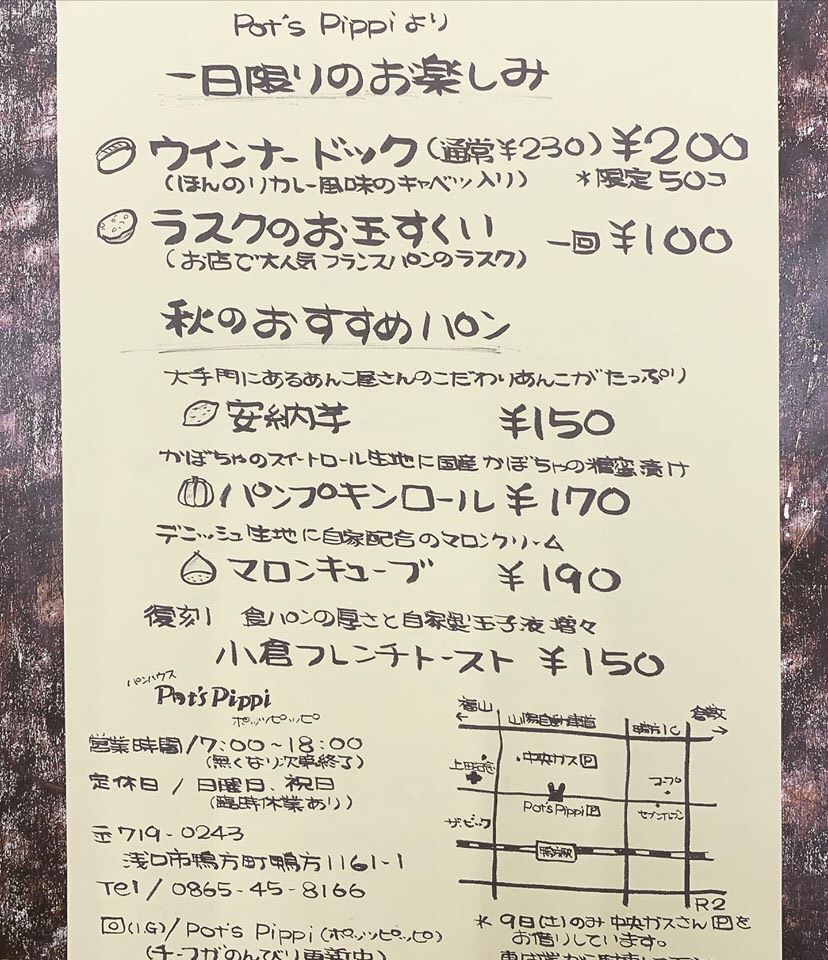 Pot's Pippiより
一日限りのお楽しみ
ウインナードック(通常¥230)¥200
(ほんのりカレー風味のキャベツ入り) *限定50コ
ラスクのお玉すくい 一回¥100
(お店で大人気フランスパンのラスク)
秋のおすすめパン
大手門にあるあんこ屋さんのこだわりあんこがたっぷり
安納芋 ¥150
かぼちゃのスイートロール生地に国産かぼちゃの糖蜜漬け
パンプキンロール ¥170
デニッシュ生地に自家配合のマロンクリーム
マロンキューブ ¥190
復刻 食パンの厚さと自家製玉子液増々
小倉フレンチトースト ¥150
パンハウス
Pot's Pippi
ポッツピッピ
営業時間/7:00~18:00
(無くなり次第終了)
定休日/日曜日、祝日
(臨時休業あり)
〒719-0243
浅口市鴨方町鴨方1161-1
Tel/0865-45-8166
(IG)/Pot's Pippi(ポッツピッピ)
(チーフがのんびり更新中)
福山
←
山陽自動車道
鴨方IC
倉敷
→
中央ガスP
コープ
Pot's Pippi P
セブンイレブン
ザ・ビッグ
鴨方駅
R2
*9日(土)のみ中央ガスさんPを
お借りしています。